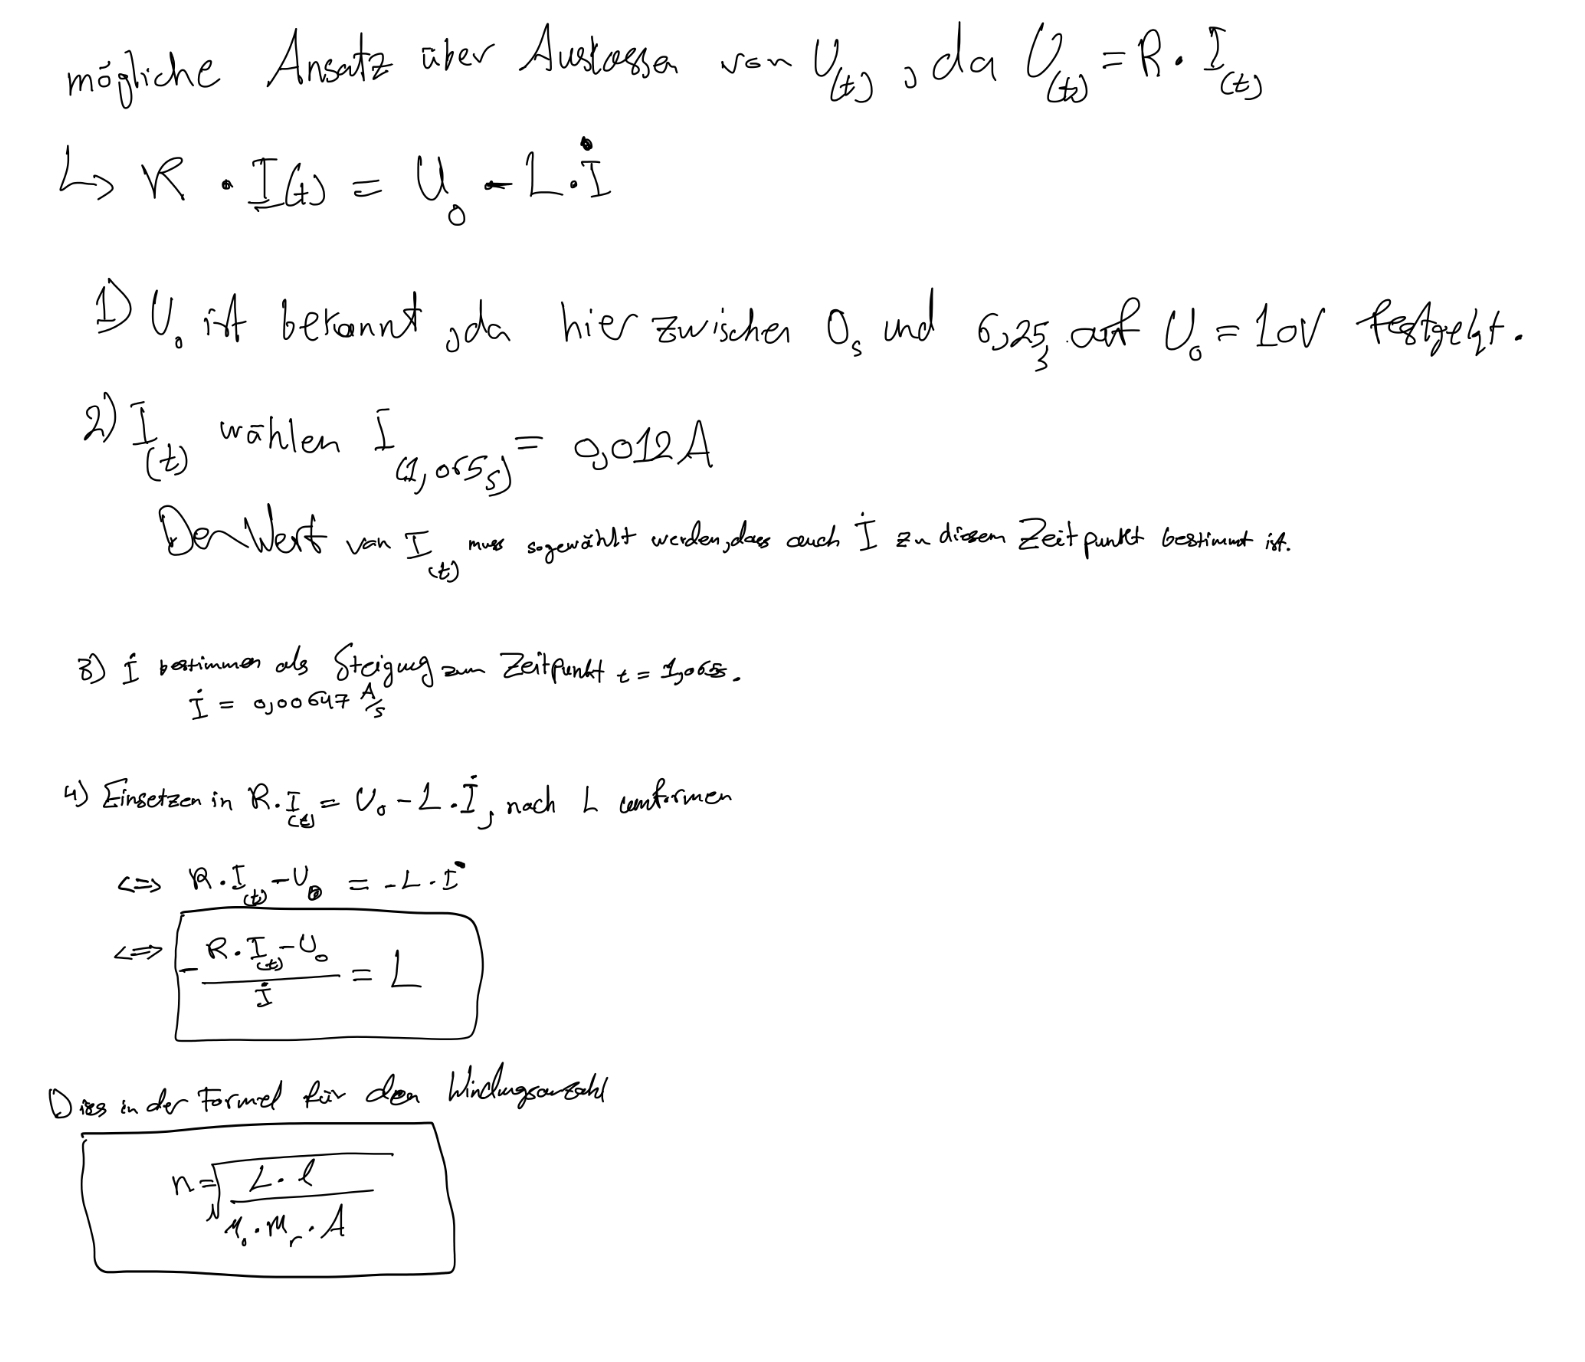 mögliche Ansatz über Auslassen von U(t), da U(t) = R · I(t)
↳ R · I(t) = U₀ - L · İ
1) U₀ ist bekannt, da hier zwischen 0s und 6,25s auf U₀ = 10V festgelegt.
2) I(t) wählen I(1,065s) = 0,012A
Der Wert von I(t) muss so gewählt werden, dass auch İ zu diesem Zeitpunkt bestimmt ist.
3) İ bestimmen als Steigung zum Zeitpunkt t = 1,065s.
İ = 0,00647 A/s
4) Einsetzen in R · I(t) = U₀ - L · İ, nach L umformen
<=> R · I(t) - U₀ = -L · İ
<=> - (R · I(t) - U₀) / İ = L
Dies in der Formel für den Windungsanzahl
n = √((L · l) / (μ₀ · μr · A))